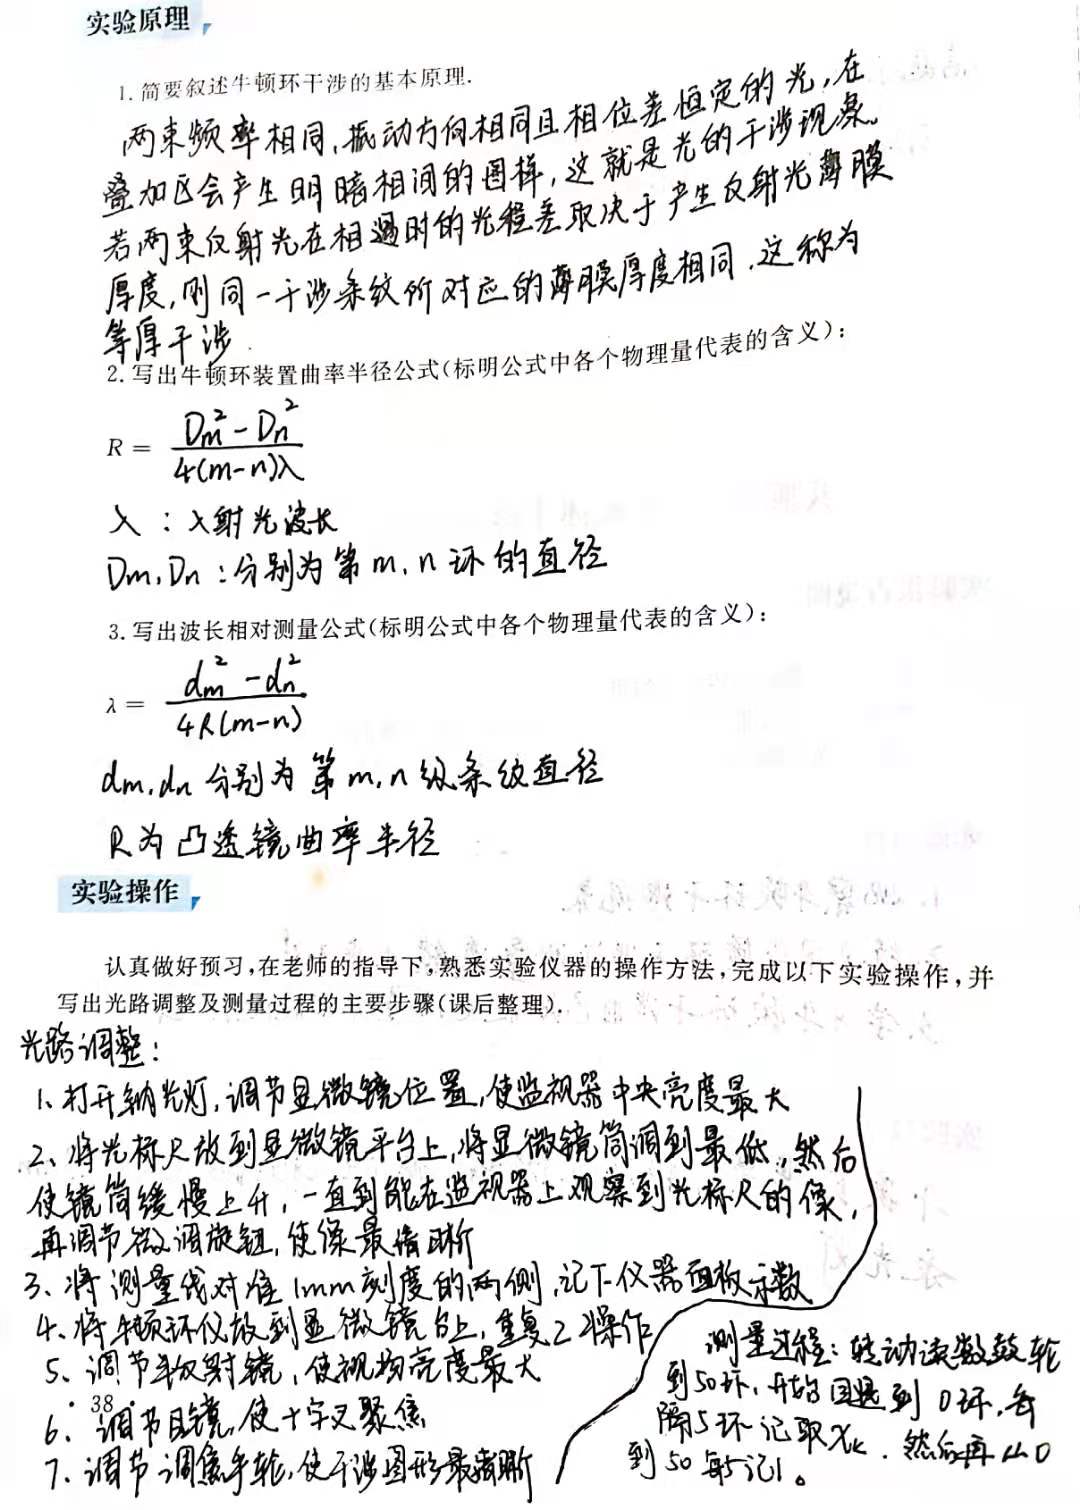 实验原理
1. 简要叙述牛顿环干涉的基本原理.
两束频率相同,振动方向相同且相位差恒定的光,在
叠加区会产生明暗相间的图样,这就是光的干涉现象。
若两束反射光在相遇时的光程差取决于产生反射光薄膜
厚度,则同一干涉条纹所对应的薄膜厚度相同.这称为
等厚干涉.
2. 写出牛顿环装置曲率半径公式(标明公式中各个物理量代表的含义):
R = (Dm² - Dn²) / 4(m-n)λ
λ : 入射光波长
Dm, Dn : 分别为第m, n环的直径
3. 写出波长相对测量公式(标明公式中各个物理量代表的含义):
λ = (dm² - dn²) / 4R(m-n)
dm, dn 分别为第m, n级条纹直径
R为凸透镜曲率半径
实验操作
认真做好预习,在老师的指导下,熟悉实验仪器的操作方法,完成以下实验操作,并
写出光路调整及测量过程的主要步骤(课后整理).
光路调整:
1、打开钠光灯,调节显微镜位置,使监视器中央亮度最大
2、将光标尺放到显微镜平台上,将显微镜筒调到最低,然后
使镜筒缓慢上升,一直到能在监视器上观察到光标尺的像,
再调节微调旋钮,使像最清晰
3、将测量线对准1mm刻度的两侧,记下仪器面板示数
4、将牛顿环仪放到显微镜台上,重复2操作
5、调节半反射镜,使视场亮度最大
6、调节目镜,使十字叉聚焦
7、调节调焦手轮,使干涉图形最清晰
测量过程:转动读数鼓轮
到50环,开始回退到0环,每
隔5环记取Xk.然后再从0
到50每5记1。
38